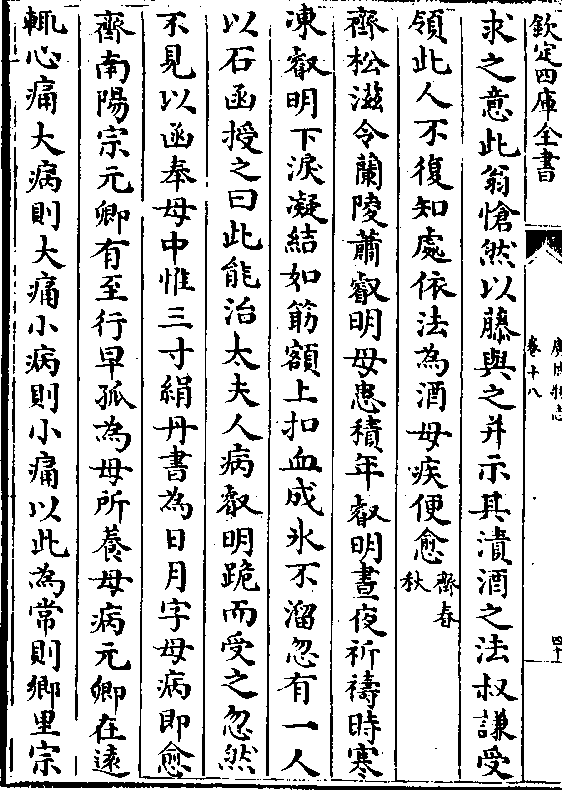 欽定四庫全書
廣博物志
卷十八
四十
求之意此翁愴然以藤與之并示其漬酒之法叔謙受
領此人不復知處依法為酒母疾便愈齊春秋
齊松滋令蘭陵蕭叡明母患積年叡明晝夜祈禱時寒
凍叡明下淚凝結如筋額上扣血成氷不溜忽有一人
以石函授之曰此能治太夫人病叡明跪而受之忽然
不見以函奉母中惟三寸絹丹書為日月字母病即愈
齊南陽宗元卿有至行早孤為母所養母病元卿在遠
輒心痛大病則大痛小病則小痛以此為常則鄉里宗